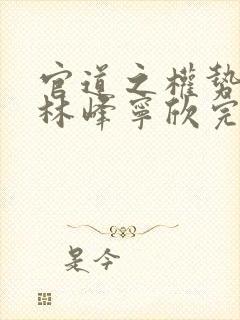 官道之權勢
林峰寧欣完
是今